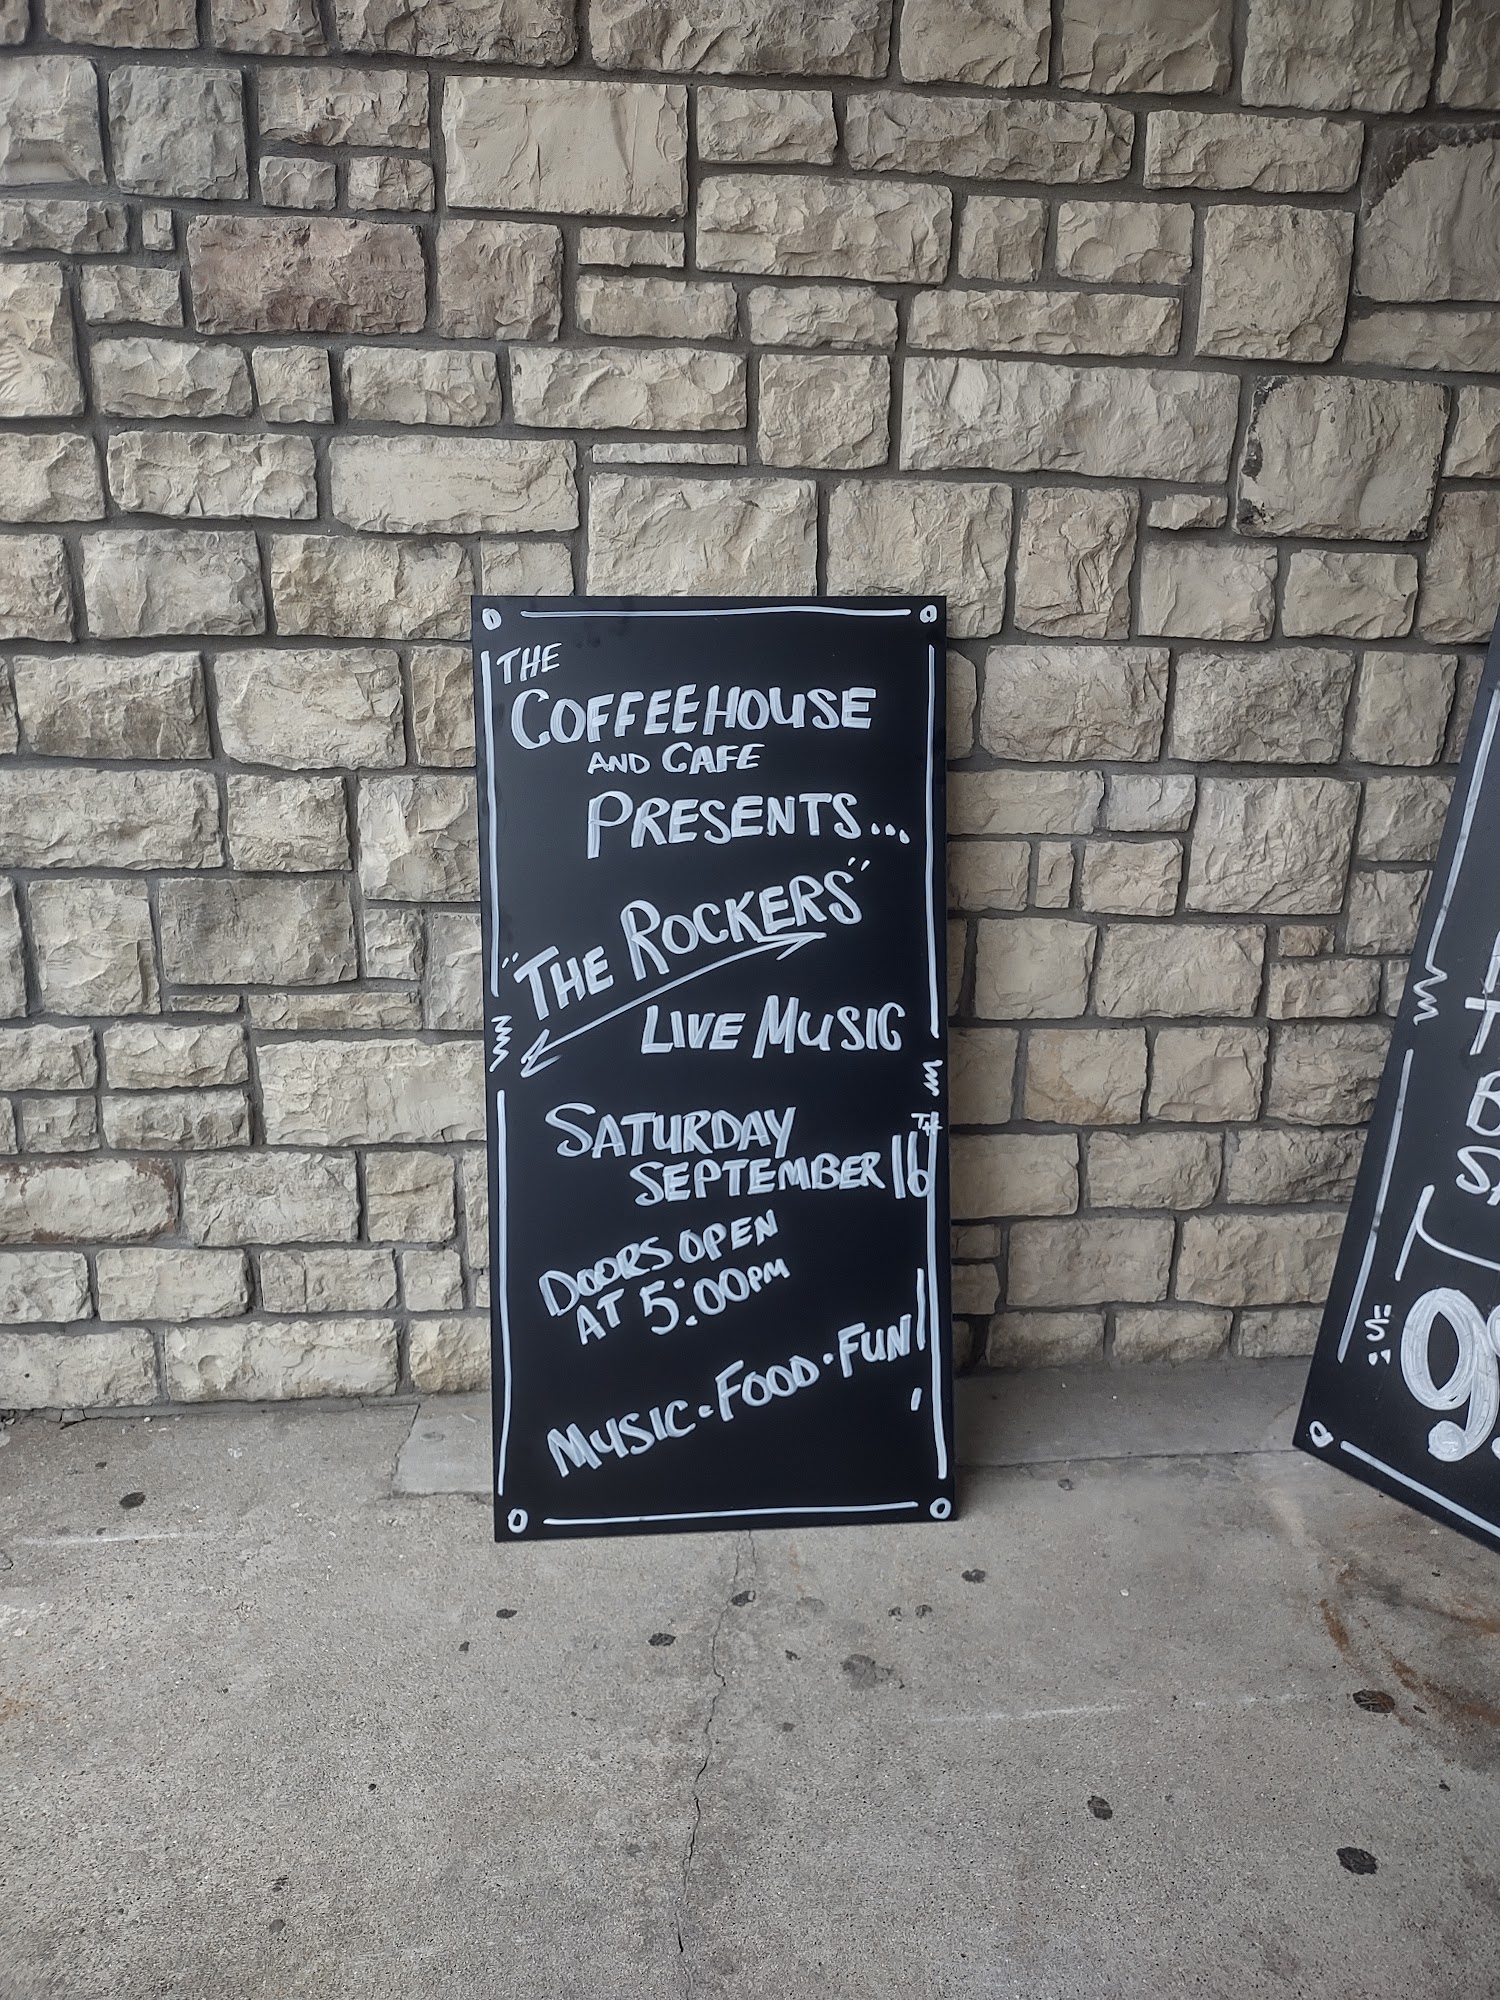 THE
COFFEEHOUSE
AND CAFE
PRESENTS...
"THE ROCKERS"
LIVE MUSIC
SATURDAY
SEPTEMBER 16TH
DOORS OPEN
AT 5:00PM
MUSIC • FOOD • FUN!